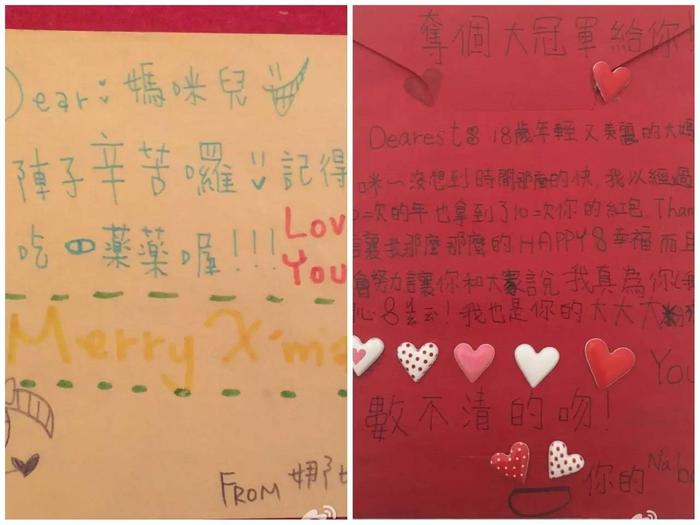 Dear: 媽咪兒
陣子辛苦囉!! 記得
吃 藥藥喔!!! Lov
You
Merry X'm
FROM 娜
奪個大冠軍給你
Dearest 18歲年輕又美麗的大媽
咪~沒想到時間那麼的快,我以經過
次的年也拿到了10=次你的紅包, Than
讓我那麼那麼的HAPPY 幸福而且
會努力讓你和大家說 我真為你
心 ! 我也是你的大大大
You
數不清的吻!
你的 Na